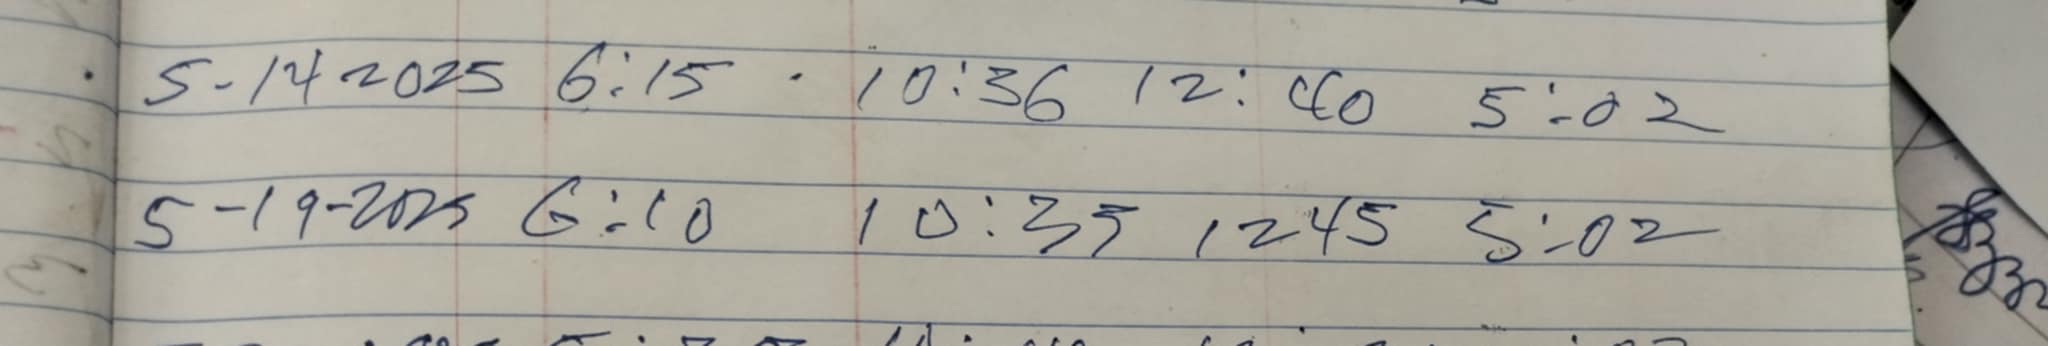 5-14 2025 6:15 . 10:36 12:40 5:02
5-19-2025 6:10 10:35 1245 5:02